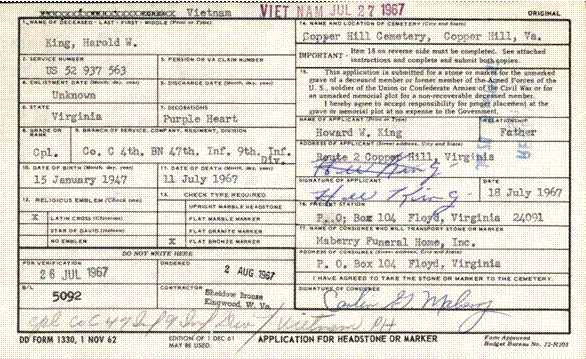 Vietnam VIET NAM JUL 27 1967 ORIGINAL
1. NAME OF DECEASED - LAST - FIRST - MIDDLE (Print or Type)
King, Harold W.
14. NAME AND LOCATION OF CEMETERY (City and State)
Copper Hill Cemetery, Copper Hill, Va.
2. SERVICE NUMBER
US 52 937 563
3. PENSION OR VA CLAIM NUMBER
IMPORTANT - Item 18 on reverse side must be completed. See attached instructions and complete and submit both copies.
4. ENLISTMENT DATE (Month, day, year)
Unknown
5. DISCHARGE DATE (Month, day, year)
15. This application is submitted for a stone or marker for the unmarked
grave of a deceased member or former member of the Armed Forces of the
U. S., soldier of the Union or Confederate Armies of the Civil War or for
an unmarked memorial plot for a non-recoverable deceased member.
I hereby agree to accept responsibility for proper placement at the
grave or memorial plot at no expense to the Government.
6. STATE
Virginia
7. DECORATIONS
Purple Heart
NAME OF APPLICANT (Print or Type)
Howard W. King
RELATIONSHIP
Father
8. GRADE OR RANK
Cpl.
9. BRANCH OF SERVICE, COMPANY, REGIMENT, DIVISION
Co. C 4th. BN 47th. Inf. 9th. Inf. Div.
ADDRESS OF APPLICANT (Street address, City and State)
Route 2 Copper Hill, Virginia
10. DATE OF BIRTH (Month, day, year)
15 January 1947
11. DATE OF DEATH (Month, day, year)
11 July 1967
SIGNATURE OF APPLICANT
King
DATE
18 July 1967
12. RELIGIOUS EMBLEM (Check one)
X LATIN CROSS (Christian)
STAR OF DAVID (Hebrew)
NO EMBLEM
13. CHECK TYPE REQUIRED
UPRIGHT MARBLE HEADSTONE
FLAT MARBLE MARKER
FLAT GRANITE MARKER
X FLAT BRONZE MARKER
16. FREIGHT STATION
P. O. Box 104 Floyd, Virginia 24091
17. NAME OF CONSIGNEE WHO WILL TRANSPORT STONE OR MARKER
Maberry Funeral Home, Inc.
ADDRESS OF CONSIGNEE (Street address, City and State)
P. O. Box 104 Floyd, Virginia
DO NOT WRITE HERE
FOR VERIFICATION
26 JUL 1967
ORDERED
2 AUG 1967
I HAVE AGREED TO TAKE THE STONE OR MARKER TO THE CEMETERY.
B/L
5092
CONTRACTOR
Sheldow Bronze
Kingwood, W. Va.
SIGNATURE OF CONSIGNEE
Cpl Co C 47 Inf 9 Inf Div / Vietnam PH
DD FORM 1330, 1 NOV 62
EDITION OF 1 DEC 61 MAY BE USED.
APPLICATION FOR HEADSTONE OR MARKER
Form Approved
Budget Bureau No. 22-R205